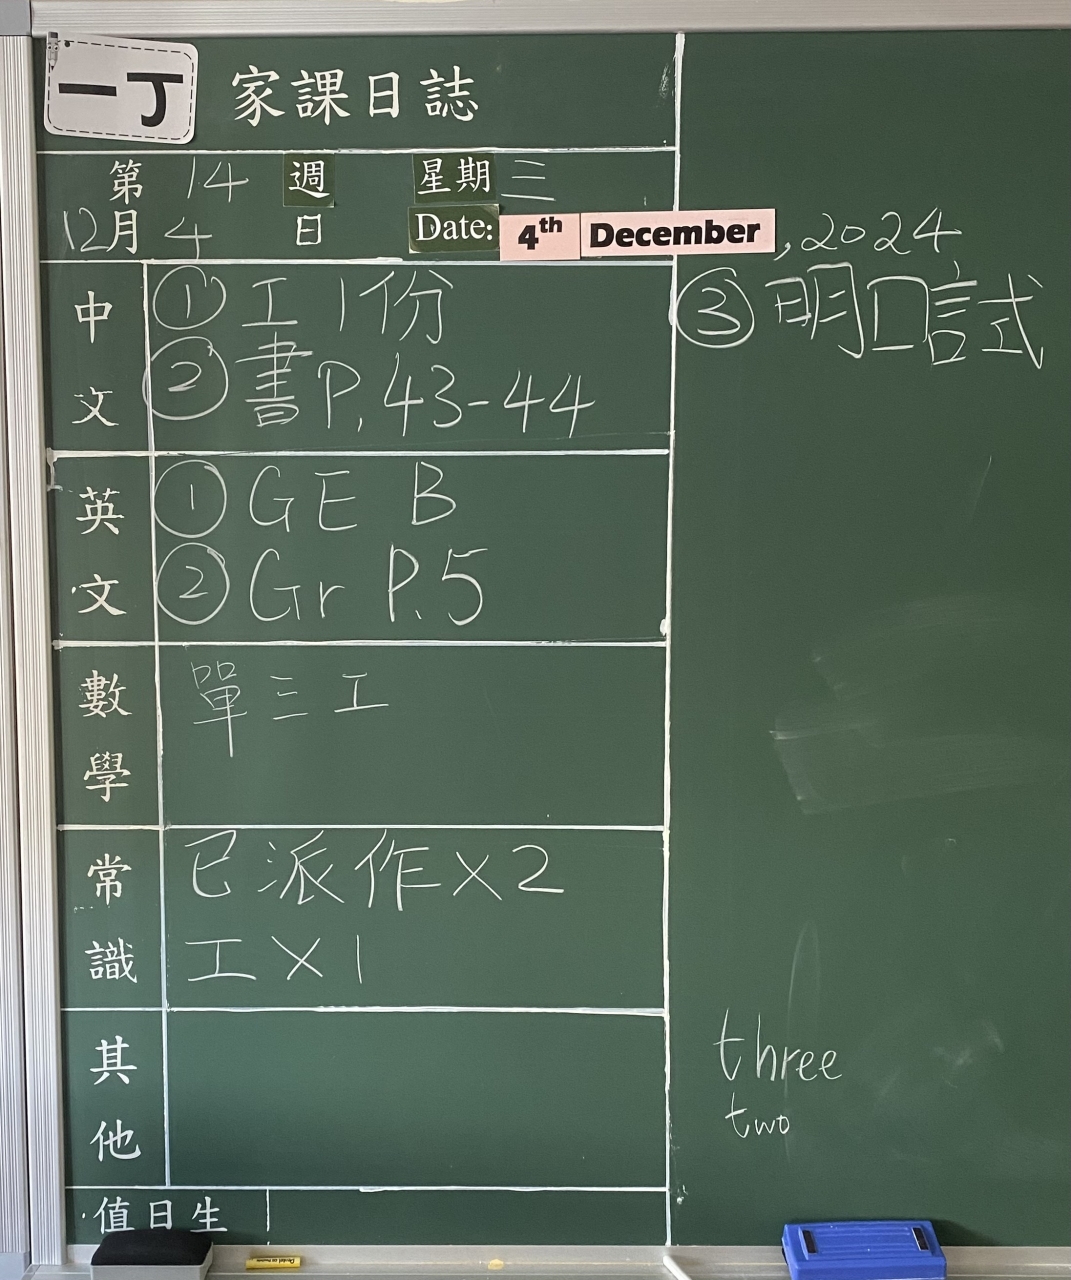 一丁 家課日誌
第 14 週 星期 三
12月 4 日 Date: 4th December , 2024
中文 ① 工 1 份 ③ 明口試
② 書 P. 43-44
英文 ① GE B
② Gr P.5
數學 單三工
常識 已派作 X 2
工 X 1
其他
three
two
值日生